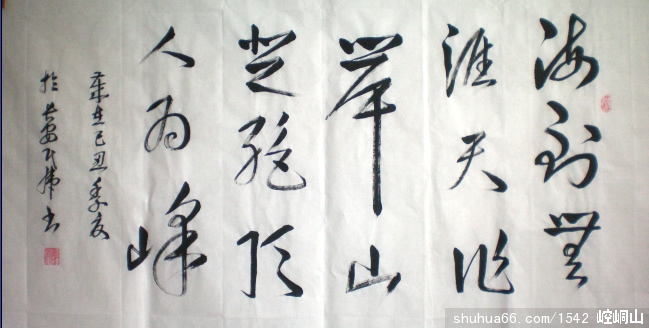 海到無
涯天作
岸山
登絶頂
人为峰
歲在己丑季夏
於長安 书
shuhua66.com/1542 崆峒山